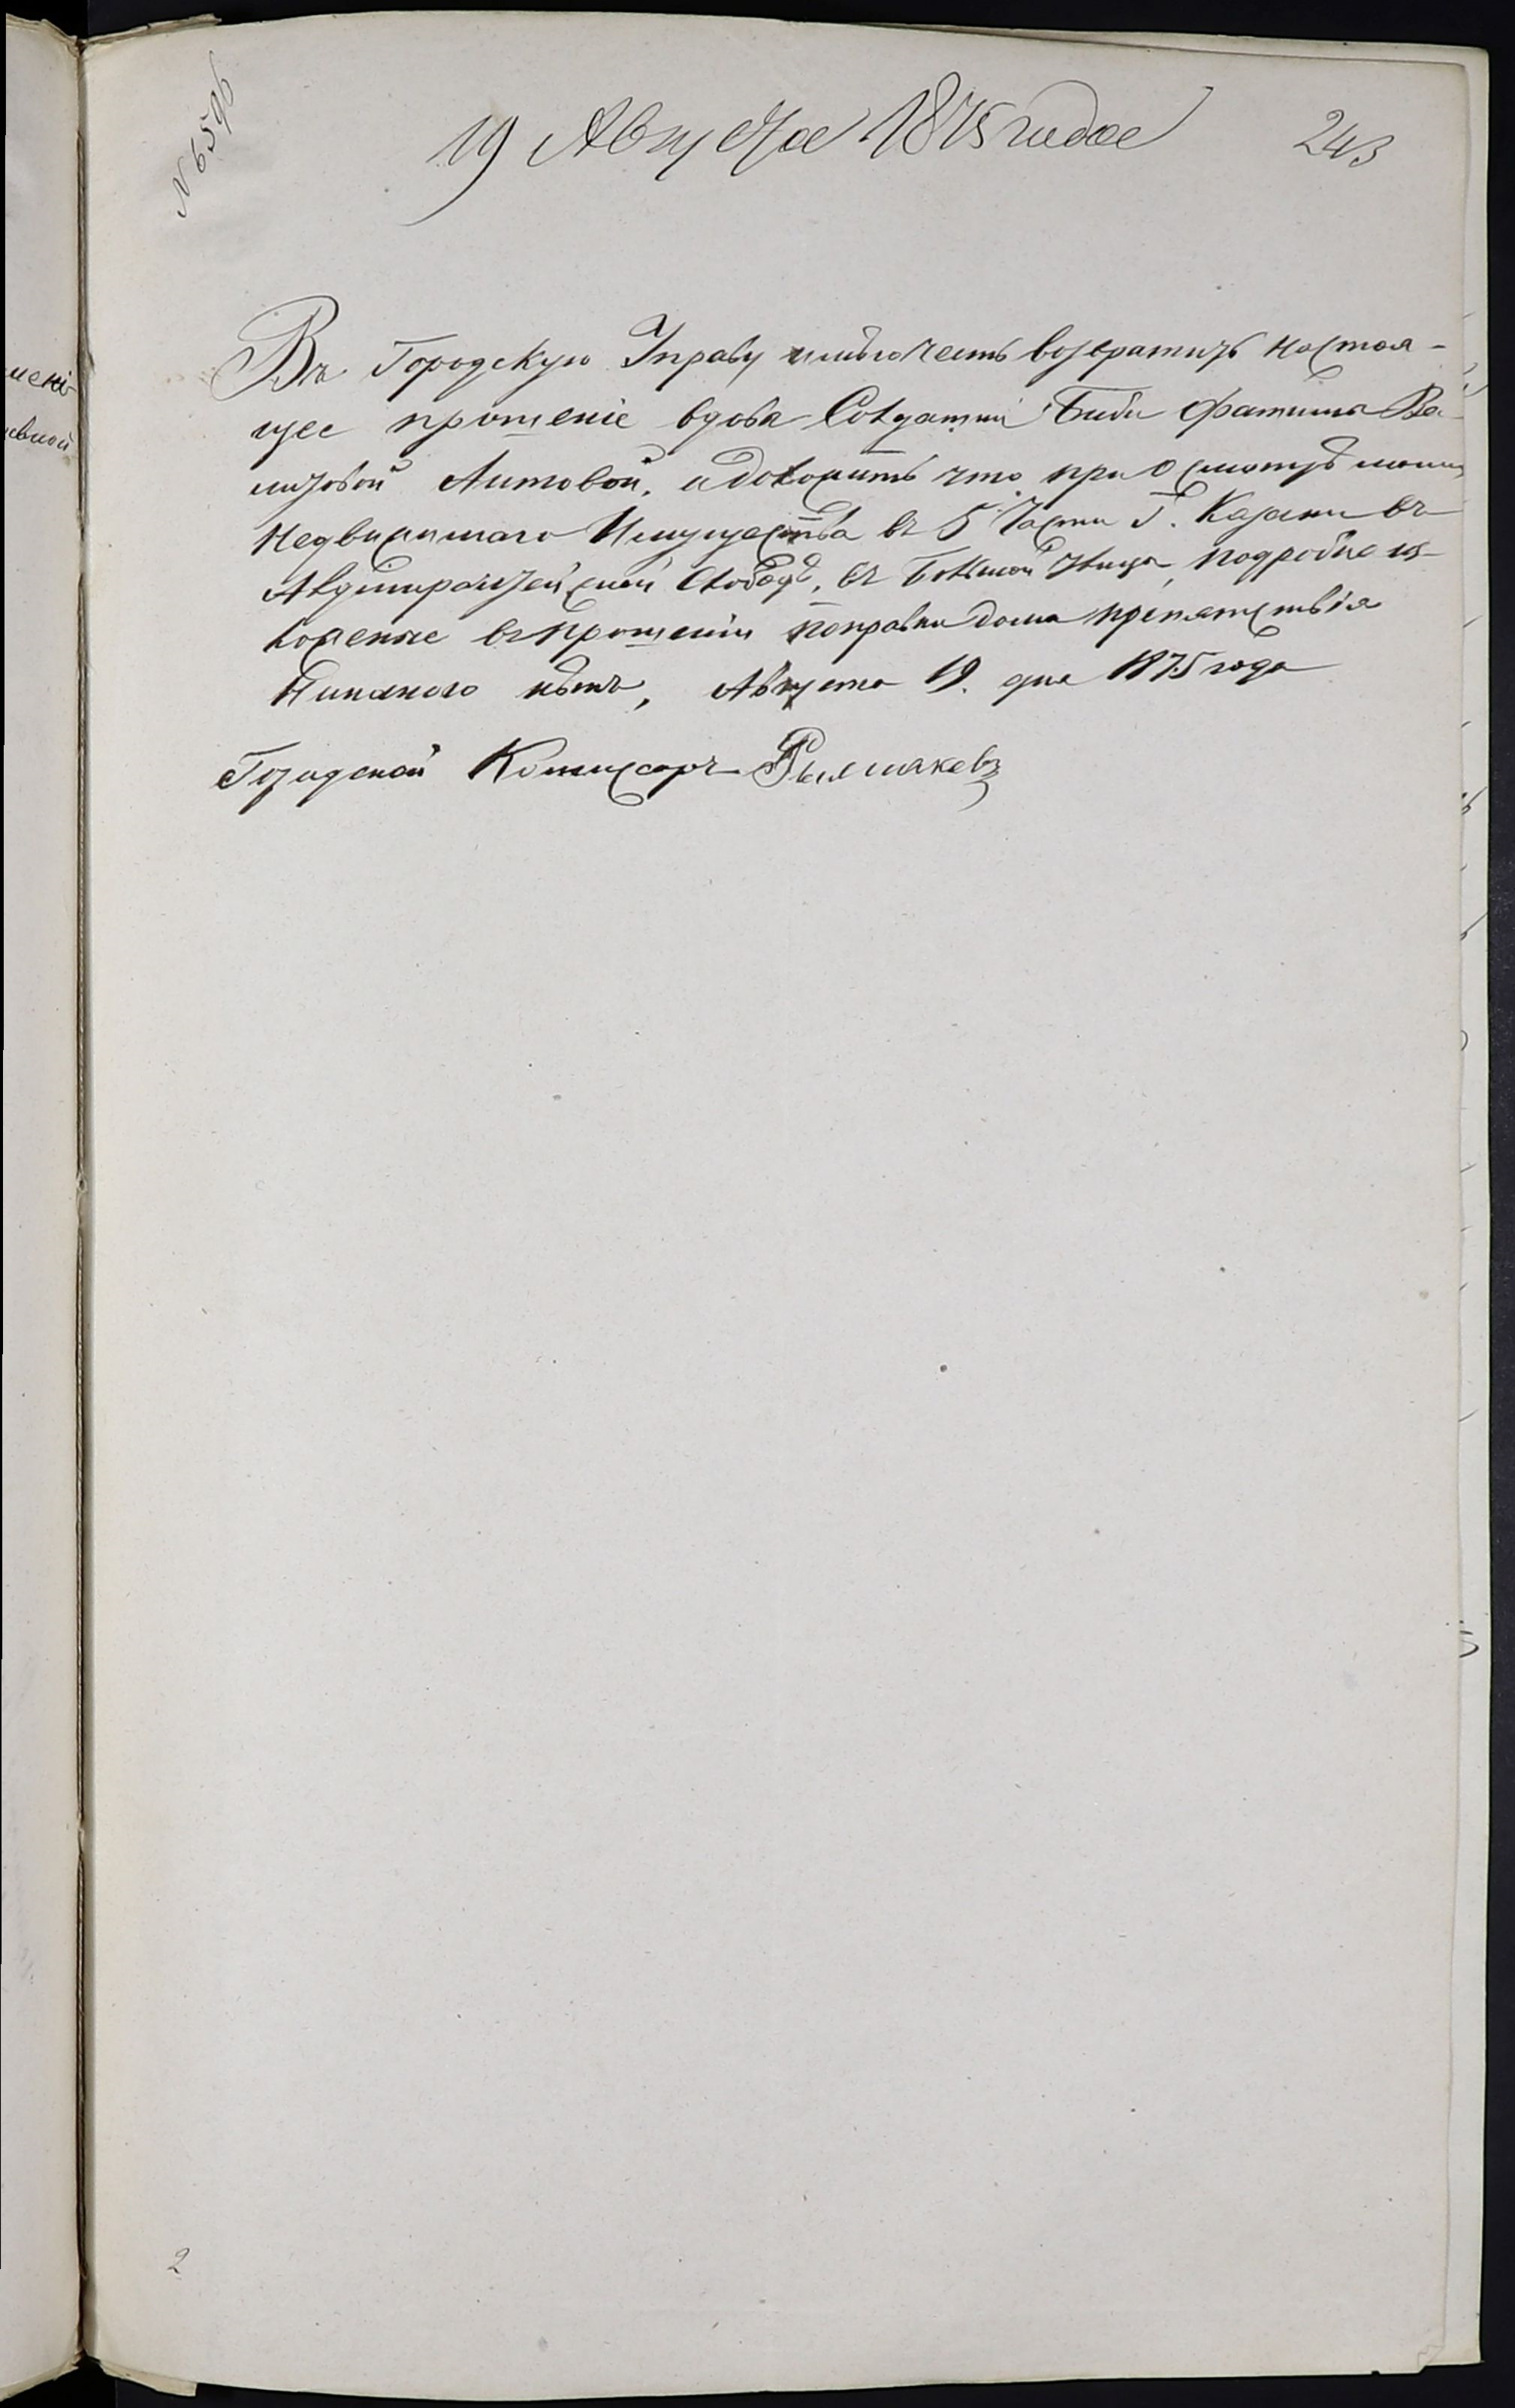 N 6596
19 Августа 1875 года
243
Въ Городскую Управу имѣю честь возвратить настоя-
щее прошеніе вдова Солдатки Биби Фатимы Ва-
литовой Аитовой, и доложить что при осмотрѣ моимъ
недвижимаго Имущества въ 5 Части Г. Казани въ
Адмиралтейской Слободѣ, въ Большой Улицѣ, подробно из-
ложенные въ прошеніи поправки дома препятствія
Никакого нѣтъ, Августа 19. дня 1875 года
Городской Комисаръ
2